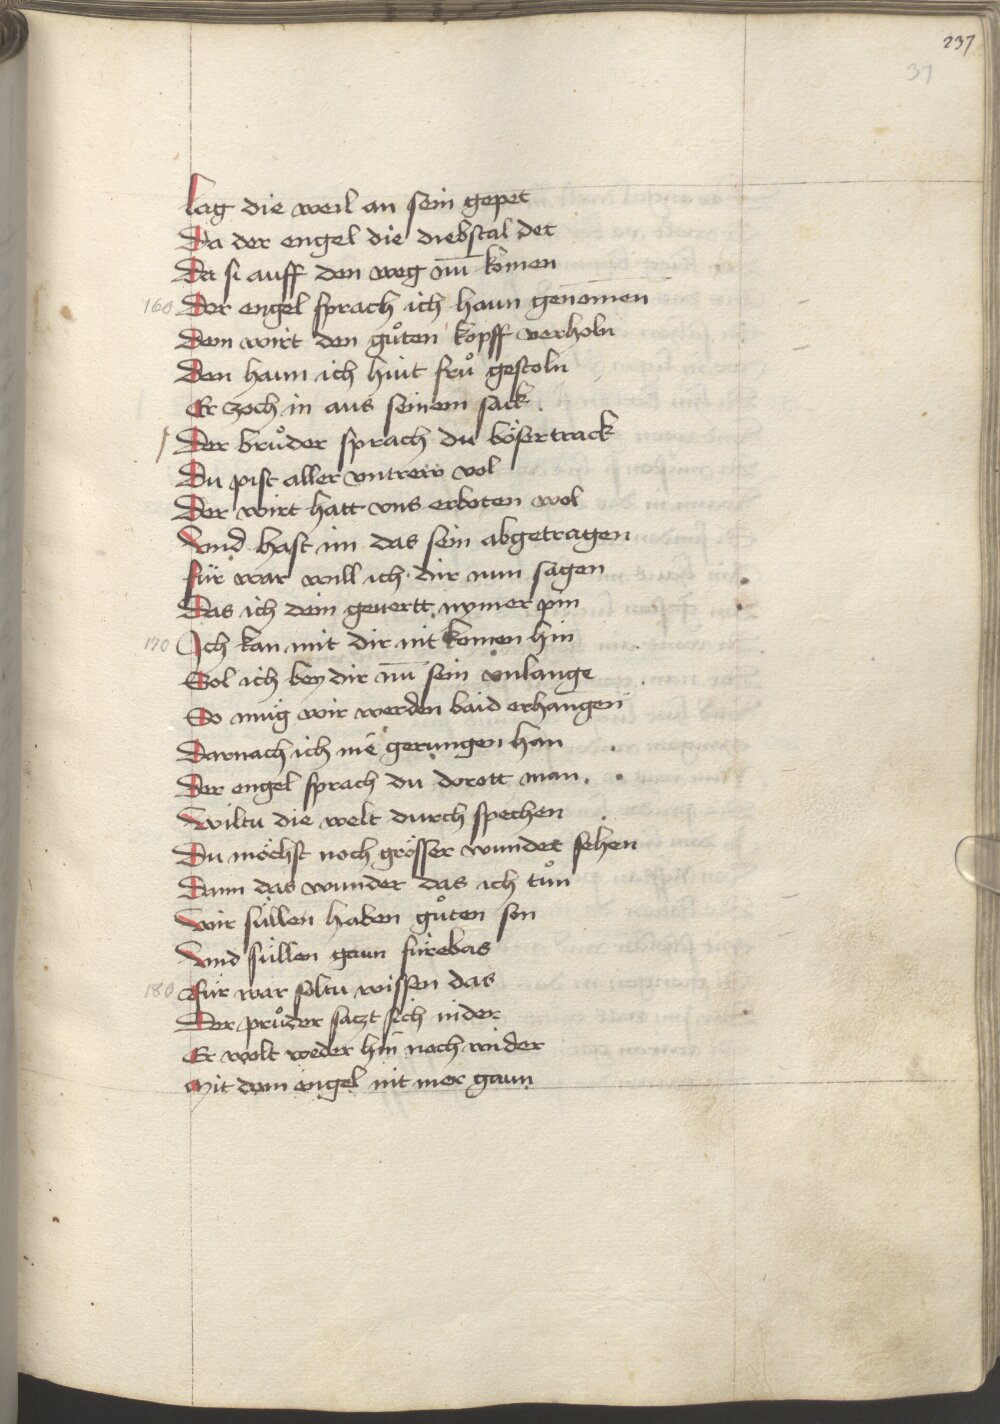 237
37
Lag die weil an sein gepet
Da der engel die diebstal det
Da si auff den weg nū komen
160 Der engel sprach ich haun genomen
Dem wirt den gůten kopff verholn
Den haun ich hiut frů gestoln
Er zoch in aus seinem sack
Der brůder sprach du böser track
Du pist aller vntrew vol
Der wirt hatt vns erboten wol
Vnd hast im das sein abgetragen
für war will ich dir nun sagen
Das ich dein geuertt nymer pin
170 Ich kan mit dir nit komen hin
Sol ich bey dir nū sein vnlange
So müg wir werden baid erhangen
Darnach ich nie gerungen han
Der engel sprach du dorott man
Wiltu die welt durch spechen
Du möchst noch grösser wunder sehen
Dann das wunder das ich tůn
Wir süllen haben gůten son
Vnd süllen gaun fürebas
180 für war soltu wissen das
Der průder saczt sich nider
Er wolt weder hin noch wider
Mit dem engel nit mer gaun